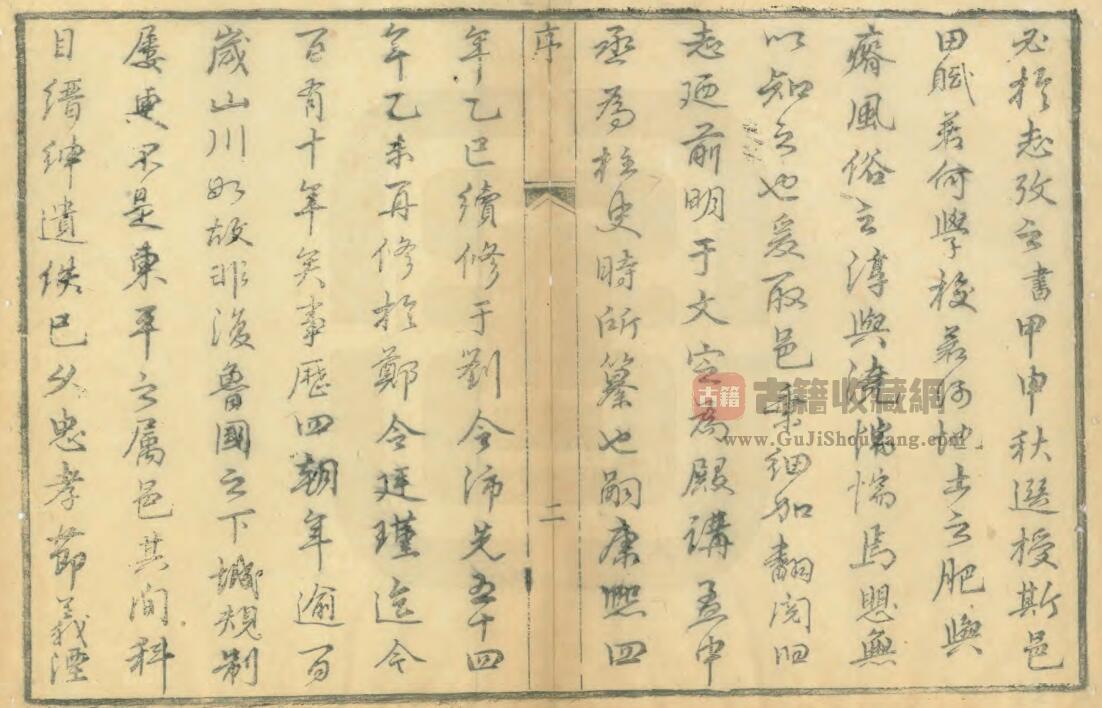 必於志攷之書甲申秋選授斯邑
田賦若何學校若何地土之肥與
瘠風俗之淳與澆惴惴焉思無
以知之也爰取邑乘細加翻閱旧
志迺前明于文定為殿講孟中
丞為柱史時所纂也嗣康熙四
序
二
年乙巳續修于劉令沛先五十四
年乙未再修於鄭令廷瑾迄今
百有十年矣事歷四朝年逾百
歲山川如故非復魯國之下城規制
屢更不是東平之屬邑其間科
目縉紳遺佚已久忠孝節義湮
古籍
古籍收藏網
www.GuJiShouCang.com